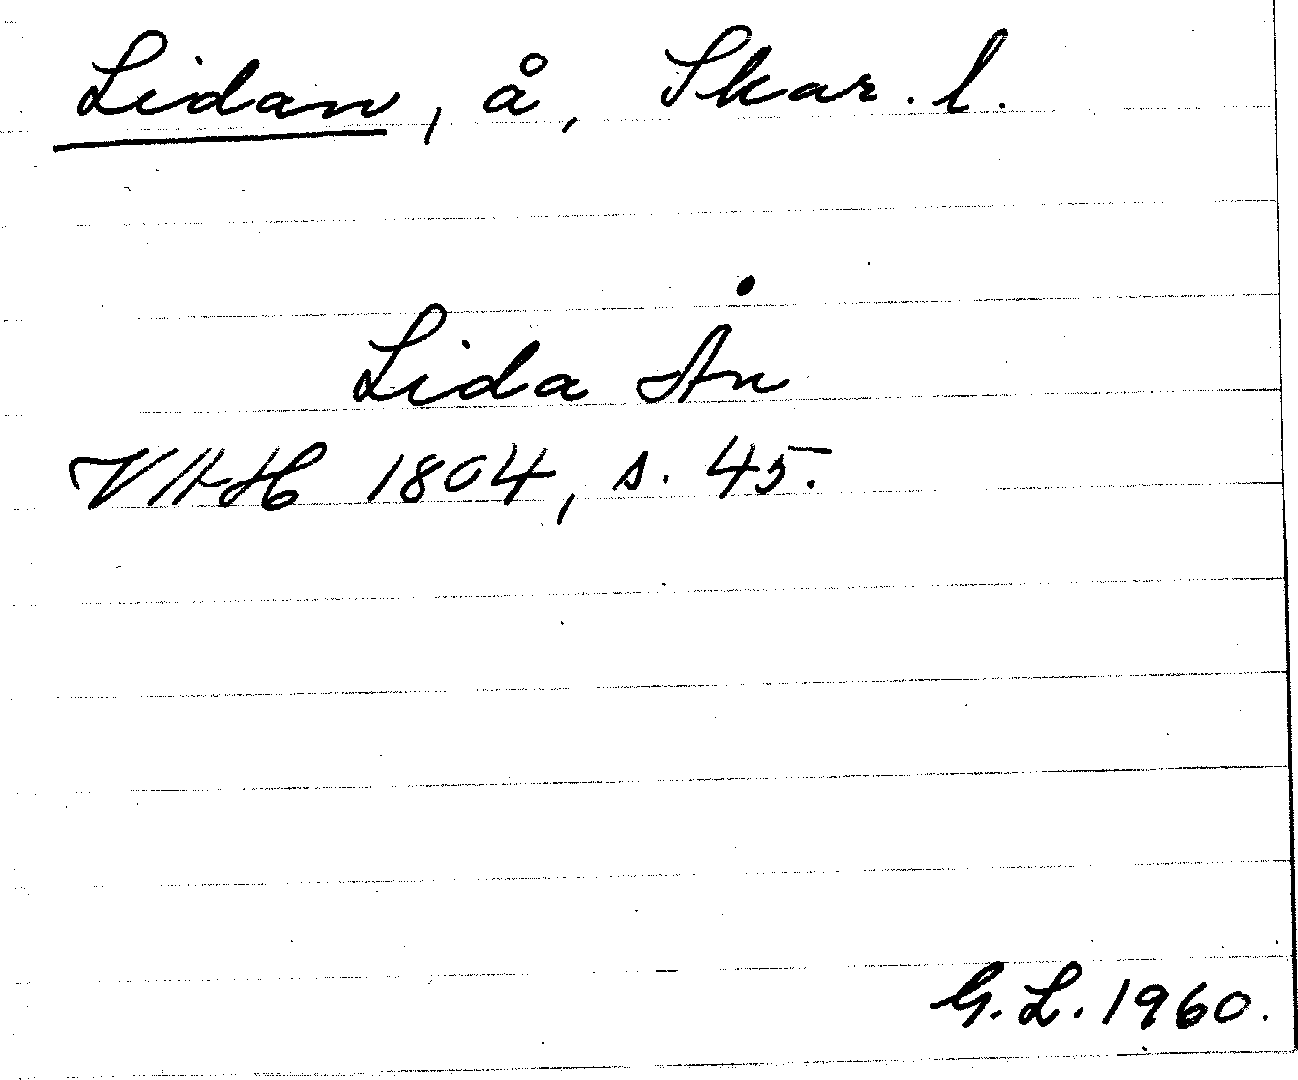 Lidan, å, Skar. l.
Lida Ån
VAH 1804, s. 45.
G. L. 1960.